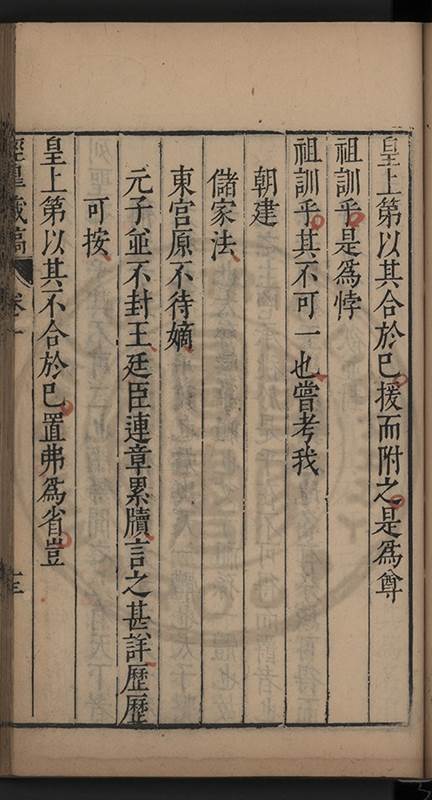 皇上第以其合於已援而附之是為尊
祖訓乎是為悖
祖訓乎其不可一也嘗考我
朝建
儲家法
東宮原不待嫡
元子並不封王廷臣連章累牘言之甚詳歷歷
可按
皇上第以其不合於已置弗為省豈
涇臯藏稿 卷一